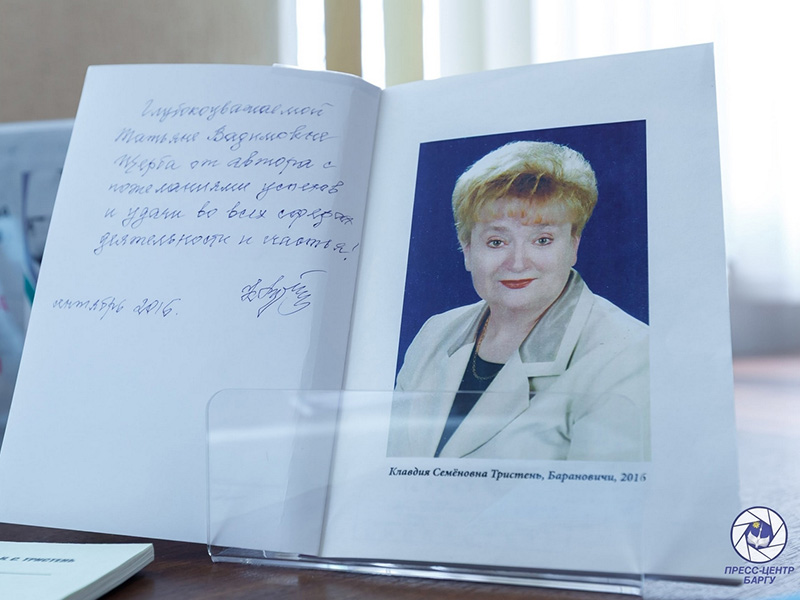 Глубокоуважаемой
Татьяне Вадимовне
Щерба от автора с
пожеланиями успехов
и удачи во всех сферах
деятельности и счастья!
сентябрь 2016.
Клавдия Семёновна Тристень, Барановичи, 2016
К. С. ТРИСТЕНЬ
ПРЕСС-ЦЕНТР
БАРГУ